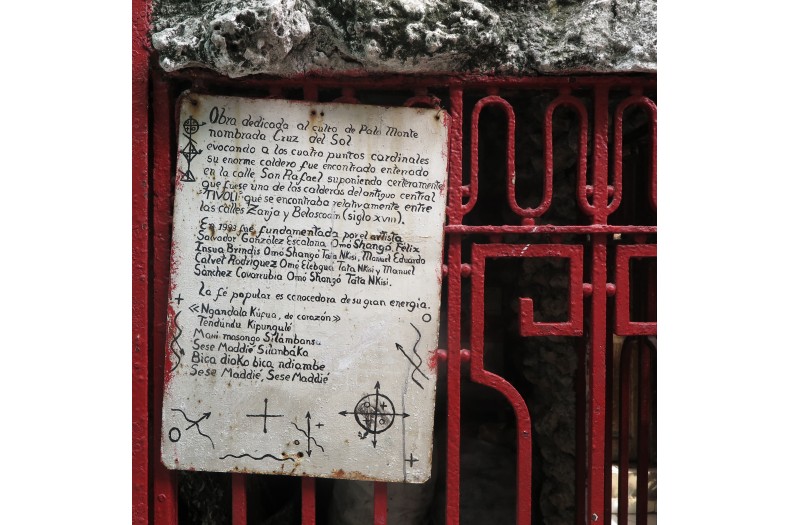 Obra dedicada al culto de Palo Monte
nombrada Cruz del Sol
evocando a los cuatro puntos cardinales
su enorme caldero fue encontrado enterrado
en la calle San Rafael suponiendo certeramente
que fuese una de las calderas del antiguo central
"TIVOLÍ" que se encontraba relativamente entre
las calles Zanja y Belascoaín (siglo XVIII).
En 1993 fue fundamentada por el artista
Salvador González Escalona, Omó Shangó, Félix
Insua Brindis Omó Shangó Tata NKisi, Manuel Eduardo
Calvet Rodríguez Omó Elebguá Tata NKisi y Manuel
Sánchez Covarrubia Omó Shangó Tata NKisi.
La fé popular es conocedora de su gran energía.
«Ngandala Kúpua, de corazón»
Tendundu Kipungulé
masongo Silámbansa
Sese Maddié Silanbáka
Bica dioko bica ndiambe
Sese Maddié, Sese Maddié